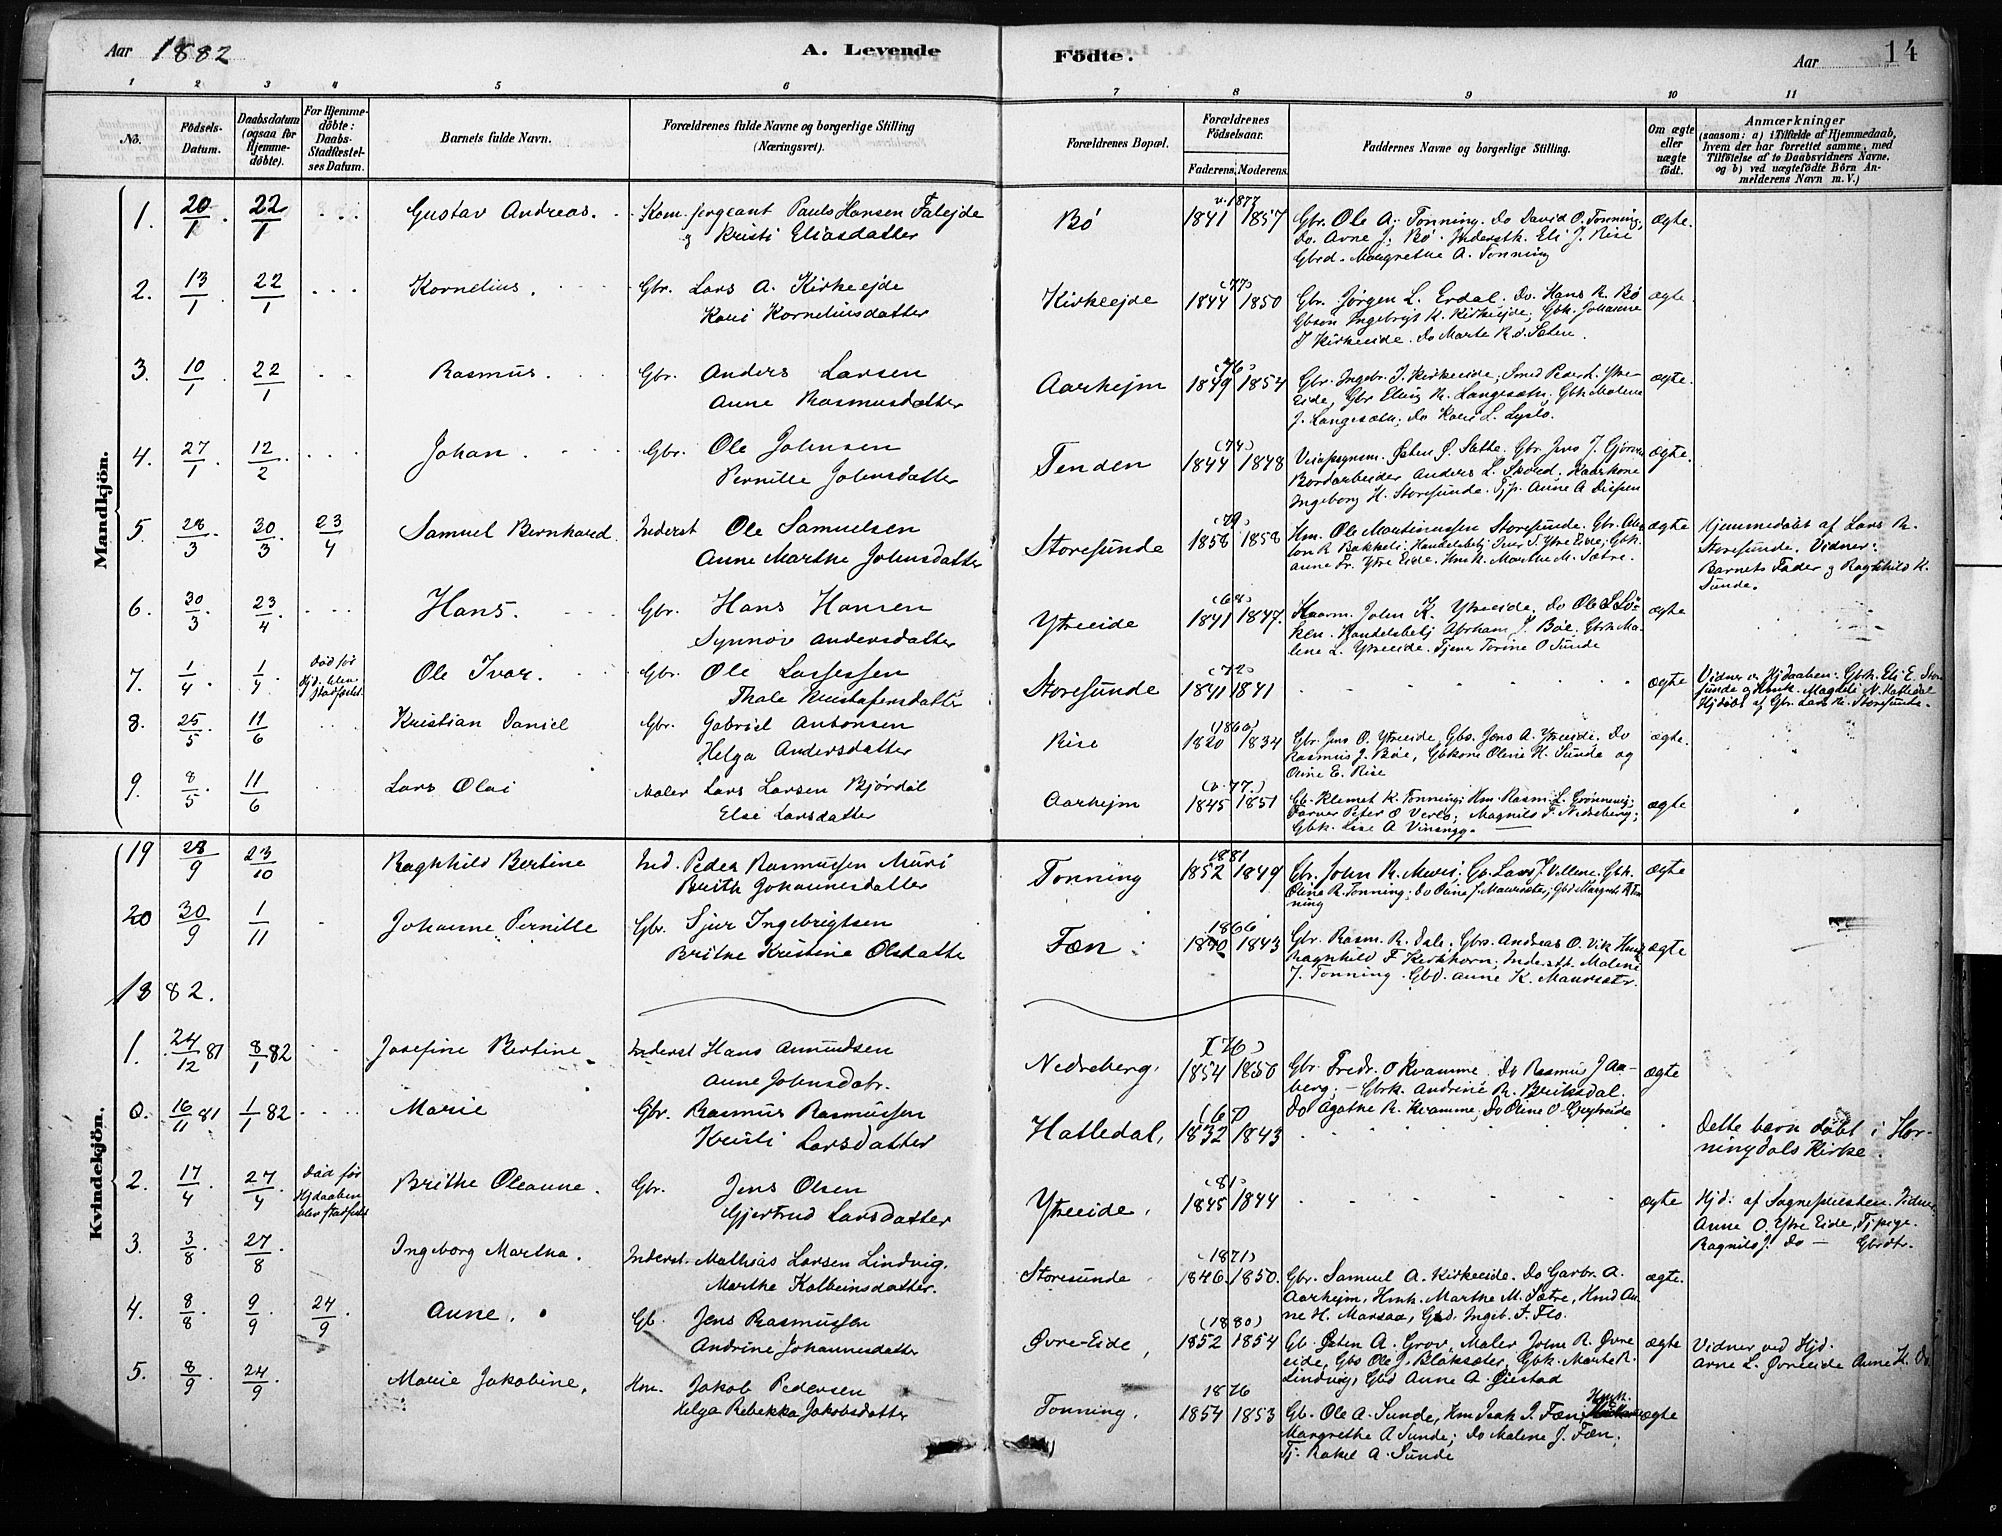 Aar 1882
A. Levende
Födte.
Aar
14
1 2 3 4 5 6 7 8 9 10 11
No.
Födsels-Datum.
Daabsdatum (ogsaa for Hjemmedöbte).
For Hjemmedöbte: Daabs-Stadfæstelses Datum.
Barnets fulde Navn.
Forældrenes fulde Navne og borgerlige Stilling (Næringsvei).
Forældrenes Bopæl.
Forældrenes Födselsaar.
Faderens. Moderens.
Faddernes Navne og borgerlige Stilling.
Om ægte eller uægte födt.
Anmærkninger
(saasom: a) i Tilfælde af Hjemmedaab, hvem der har forrettet samme, med Tilföielse af to Daabsvidners Navne, og b) ved uægtefödte Börn Anmelderens Navn m. V.)
Mandkjön.
1. 20/1 22/1 Gustav Andreas. Kom. sergeant Pauls Hansen Faleide
& Kristi Eliasdatter
Bö v. 1877 1841 1857
Gbr. Ole A. Tonning. Do David O. Tonning,
Do. Arne J. Bö. Inderstk. Eli J. Rise
Gbrd. Margrethe A. Tonning
ægte.
2. 13/1 22/1 Kornelius. Gbr. Lars A. Kirkeejde
Kari Korneliusdatter
Kirkeejde (77) 1844 1850
Gbr. Jörgen L. Erdal. Do. Hans R. Bö
Gbsön Ingebrigt K. Kirkeeide, Gbk. Johanne
J Kirkeeide. Do Marte R. d. Sæten.
ægte.
3. 10/1 22/1 Rasmus. Gbr. Anders Larsen
Anne Rasmusdatter
Aarhejm (76) 1849 1854
Gbr. Ingebr. J. Kirkeeide, Smed Peder L. Ytre-
eide, Gbr Eling R. Langesætr. Gbk Malene
J. Langesætr, Do Kari L. Lyslo.
ægte.
4. 27/1 12/2 Johan. Gbr. Ole Johnsen
Pernille Johnsdatter
Tenden (74) 1844 1848
Veiopsynsm. Östen J. Sætte. Gbr. Jens J. Gjörven
Bordarbeider Anders L. Skored. Kaarkone
Ingeborg H. Storesunde. Tjp. Anne A
ægte.
5. 28/3 30/3 23/4 Samuel Bernhard. Inderst Ole Samuelsen
Anne Marthe Johnsdatter
Storesunde (79) 1858 1858
Hm. Ole Martinussen Storesunde. Gbr.
R Bakkeli, Handelsbetj Iver S. Ytre Eide, Gbk.
Anne Fr. Ytre Eide. Hmk. Marthe M. Sætre.
ægte
Hjemmedöbt af Lars R.
Storesunde. Vidner:
Barnets Fader & Ragnhild K.
Sunde.
6. 30/3 23/4 Hans. Gbr. Hans Hansen
Synnöv Andersdatter
Ytreeide (68) 1841 1847.
Kaarm. John K. Ytreeide. Do Ole S Lö-
ken. Handelsbetj Abrham J. Böe. Gbrk Ma-
lene L. Ytreeide. Tjener Torine O Sunde
ægte
7. 1/4 1/4 Död för Hjd. blev stadfæstet Ole Ivar. Gbr. Ole Lassessen
Thale Kristofersdatter
Storesunde (72) 1841 1841
ægte
Vidner v. Hjdaaben: Gbk. Eli E. Store
sunde & Hmk. Magnild N. Hatledal
Hjdöbt af Gbr. Lars R. Storesunde.
8. 25/5 11/6 Kristian Daniel Gbr. Gabriel Antonsen
Helga Andersdatter
Rise (1860) 1820 1834
Gbr. Jens O. Ytreeide, Gbs. Jens A. Ytreeide. Do
Rasmus J. Böe, Gbkone Oline H. Sunde og
Oline E. Rise
ægte.
9. 8/5 11/6 Lars Olai Maler Lars Larsen Björdal
Elsi Larsdatter
Aarhejm (v. 77.) 1845 1851
Gb. Klemet K. Tonning; Hm. Rasm. L. Grönnevig;
Farver Peter O Verlo, Magnild F. Nedreberg;
Gbk. Lise A Vinsnyg.
ægte
Kvindekjön.
19 28/9 23/10 Ragnhild Bertine Ind. Peder Rasmussen Muri
Brith Johannesdatter
Tonning 1881 1852 1849
Gbr. John R. Muri; Gb. Lars J. Vellene. Gbk.
Oline R. Tonning; Do Oline J Maursæter, Gbd Margrete R Ton
ning
ægte
20 30/9 1/11 Johanne Pernille Gbr. Sjur Ingebrigtsen
Brithe Kristine Olsdatter
Fæn 1866 1840 1843
Gbr. Rasm. R. Dale. Gbs. Andreas O. Vik Hmk
Ragnhild F Kirkhorn; Inderstk. Malene
J. Tonning. Gbd. Anne K. Maursæter.
ægte
1882.
1. 24/12 81 8/1 82 Josefine Bertine Inderst Hans Amundsen
Anne Johnsdatr.
Nedreberg. (76) 1854 1850
Gbr. Fredr. O Kvamme. Do Rasmus J Aa-
berg. – Gbrk. Andrine R. Briksdal.
Do Agathe R. Kvamme. Do Oline O
ægte
0. 16/11 81 1/1 82 Marie Gbr. Rasmus Rasmussen
Kristi Larsdatter
Hatledal, (67) 1832 1843
Dette barn döbt i Hor-
ningdals Kirke.
2. 17/4 27/4 Död för Hjdaaben blev stadfæst Brithe Oleanne. Gbr. Jens Olsen
Gjertrud Larsdatter
Ytreeide. (81) 1845 1844
ægte
Hjd: af Sognepresten. Vidner
Anne O. Ytre Eide, Tjpige.
Ragnild J. Do — Gbrdtr.
3. 3/8 27/8 Ingeborg Martha. Inderst. Mathias Larsen Lindvig.
Marthe Kolbeinsdatter.
Storesunde (1871) 1846 1850.
Gbr. Samuel A. Kirkeeide. Do Garbr. A.
Aarhejm, Hmk. Marthe M. Sætre, Hmd An-
ne H. Marsaa, Gbd. Ingeb. A. Flo.
ægte.
4. 8/8 9/9 24/9 Anne. Gb. Jens Rasmussen
Andrine Johannesdatter
Övre-Eide, (1880) 1852 1854
Gb. Östen A. Grov, Maler John R. Övre
eide, Gbs Ole J. Blaksæter, Gbk. Marte R.
Lindvig, Gbd Anne A. Öiestad
ægte
Vidner ved Hjd.
Arne L. Övreeide Anne K. Do
5. 8/9 24/9 Marie Jakobine. Hm. Jakob Pedersen
Helga Rebekka Jakobsdatter
Tonning. 1876 1854 1853
Gb. Ole A. Sunde, Hm Isak J. Fæn, Hmk
Margrethe A Sunde; Do Malene J. Fæn,
Tj. Rakel A. Sunde
ægte